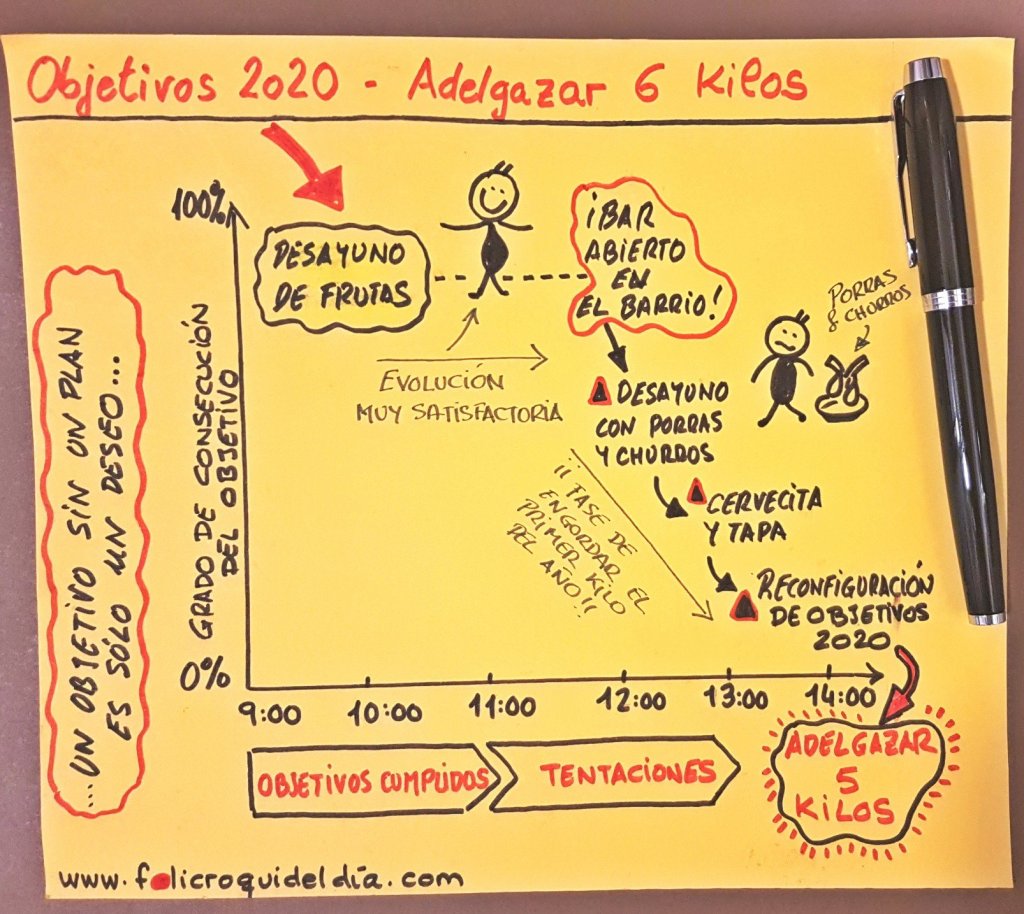 Objetivos 2020 - Adelgazar 6 kilos
100%
DESAYUNO
DE FRUTAS
¡BAR
ABIERTO
EN
EL BARRIO!
PORRAS
& CHURROS
EVOLUCIÓN
MUY SATISFACTORIA
DESAYUNO
CON PORRAS
Y CHURROS
¡¡FASE DE
ENGORDAR EL
PRIMER KILO
DEL AÑO!!
CERVECITA
Y TAPA
RECONFIGURACIÓN
DE OBJETIVOS
2020
GRADO DE CONSECUCIÓN
DEL OBJETIVO
...UN OBJETIVO SIN UN PLAN
ES SÓLO UN DESEO...
0%
9:00 10:00 11:00 12:00 13:00 14:00
OBJETIVOS CUMPLIDOS
TENTACIONES
ADELGAZAR
5
KILOS
www.folicroquideldía.com